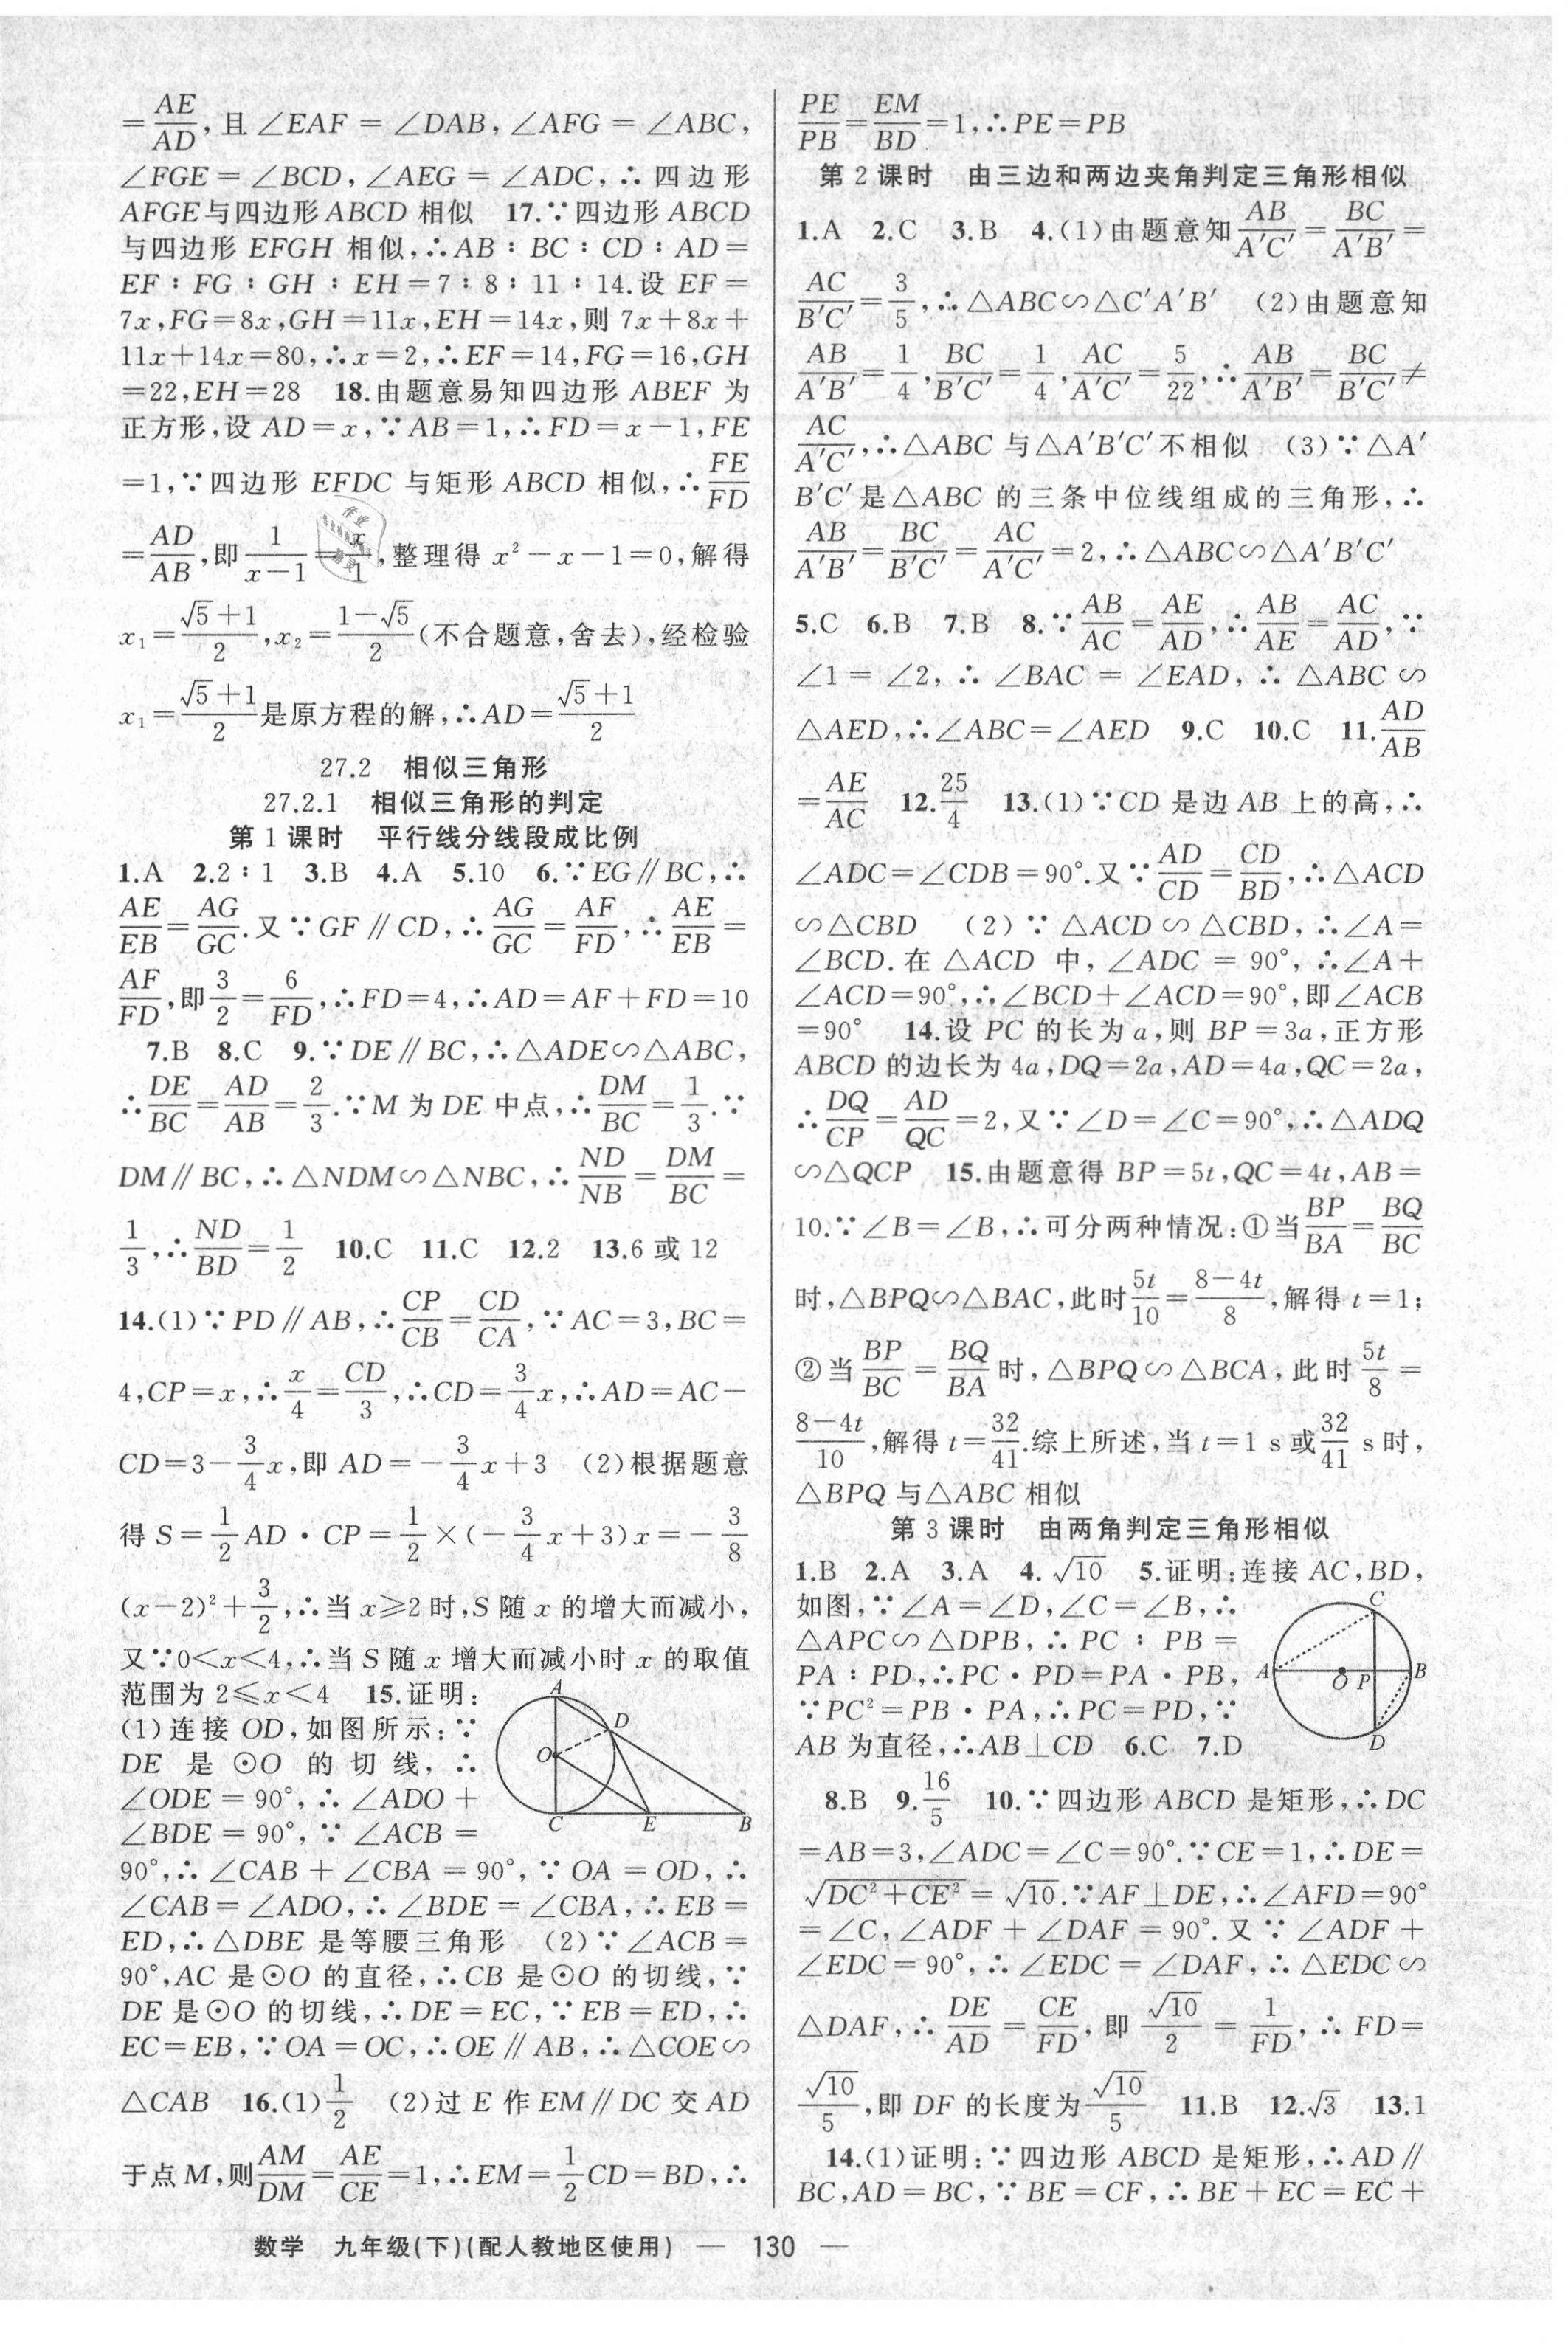 =AE/AD,且∠EAF=∠DAB,∠AFG=∠ABC,
∠FGE=∠BCD,∠AEG=∠ADC,∴四边形
AFGE与四边形ABCD相似 17.∵四边形ABCD
与四边形EFGH相似,∴AB∶BC∶CD∶AD=
EF∶FG∶GH∶EH=7∶8∶11∶14.设EF=
7x,FG=8x,GH=11x,EH=14x,则7x+8x+
11x+14x=80,∴x=2,∴EF=14,FG=16,GH
=22,EH=28 18.由题意易知四边形ABEF为
正方形,设AD=x,∵AB=1,∴FD=x-1,FE
=1,∵四边形EFDC与矩形ABCD相似,∴FE/FD
=AD/AB,即1/(x-1)=x/1,整理得x²-x-1=0,解得
x₁=(√5+1)/2,x₂=(1-√5)/2(不合题意,舍去),经检验
x₁=(√5+1)/2是原方程的解,∴AD=(√5+1)/2
27.2 相似三角形
27.2.1 相似三角形的判定
第1课时 平行线分线段成比例
1.A 2.2∶1 3.B 4.A 5.10 6.∵EG∥BC,∴
AE/EB=AG/GC.又∵GF∥CD,∴AG/GC=AF/FD,∴AE/EB=
AF/FD,即3/2=6/FD,∴FD=4,∴AD=AF+FD=10
7.B 8.C 9.∵DE∥BC,∴△ADE∽△ABC,
∴DE/BC=AD/AB=2/3.∵M为DE中点,∴DM/BC=1/3.∵
DM∥BC,∴△NDM∽△NBC,∴ND/NB=DM/BC=
1/3,∴ND/BD=1/2 10.C 11.C 12.2 13.6或12
14.(1)∵PD∥AB,∴CP/CB=CD/CA,∵AC=3,BC=
4,CP=x,∴x/4=CD/3,∴CD=3/4x,∴AD=AC-
CD=3-3/4x,即AD=-3/4x+3 (2)根据题意
得S=1/2AD·CP=1/2×(-3/4x+3)x=-3/8
(x-2)²+3/2,∴当x≥2时,S随x的增大而减小,
又∵0<x<4,∴当S随x增大而减小时x的取值
范围为2≤x<4 15.证明:
(1)连接OD,如图所示:∵
DE是⊙O的切线,∴
∠ODE=90°,∴∠ADO+
∠BDE=90°,∵∠ACB=
A
D
O
C
E
B
90°,∴∠CAB+∠CBA=90°,∵OA=OD,∴
∠CAB=∠ADO,∴∠BDE=∠CBA,∴EB=
ED,∴△DBE是等腰三角形 (2)∵∠ACB=
90°,AC是⊙O的直径,∴CB是⊙O的切线,∵
DE是⊙O的切线,∴DE=EC,∵EB=ED,∴
EC=EB,∵OA=OC,∴OE∥AB,∴△COE∽
△CAB 16.(1)1/2 (2)过E作EM∥DC交AD
于点M,则AM/DM=AE/CE=1,∴EM=1/2CD=BD,∴
PE/PB=EM/BD=1,∴PE=PB
第2课时 由三边和两边夹角判定三角形相似
1.A 2.C 3.B 4.(1)由题意知AB/A′C′=BC/A′B′=
AC/B′C′=3/5,∴△ABC∽△C′A′B′ (2)由题意知
AB/A′B′=1/4,BC/B′C′=1/4,AC/A′C′=5/22,∴AB/A′B′=BC/B′C′≠
AC/A′C′,∴△ABC与△A′B′C′不相似 (3)∵△A′
B′C′是△ABC的三条中位线组成的三角形,∴
AB/A′B′=BC/B′C′=AC/A′C′=2,∴△ABC∽△A′B′C′
5.C 6.B 7.B 8.∵AB/AC=AE/AD,∴AB/AE=AC/AD,∵
∠1=∠2,∴∠BAC=∠EAD,∴△ABC∽
△AED,∴∠ABC=∠AED 9.C 10.C 11.AD/AB
=AE/AC 12.25/4 13.(1)∵CD是边AB上的高,∴
∠ADC=∠CDB=90°.又∵AD/CD=CD/BD,∴△ACD
∽△CBD (2)∵△ACD∽△CBD,∴∠A=
∠BCD.在△ACD中,∠ADC=90°,∴∠A+
∠ACD=90°,∴∠BCD+∠ACD=90°,即∠ACB
=90° 14.设PC的长为a,则BP=3a,正方形
ABCD的边长为4a,DQ=2a,AD=4a,QC=2a,
∴DQ/CP=AD/QC=2,又∵∠D=∠C=90°,∴△ADQ
∽△QCP 15.由题意得BP=5t,QC=4t,AB=
10.∵∠B=∠B,∴可分两种情况:①当BP/BA=BQ/BC
时,△BPQ∽△BAC,此时5t/10=(8-4t)/8,解得t=1;
②当BP/BC=BQ/BA时,△BPQ∽△BCA,此时5t/8=
(8-4t)/10,解得t=32/41.综上所述,当t=1 s或32/41 s时,
△BPQ与△ABC相似
第3课时 由两角判定三角形相似
1.B 2.A 3.A 4.√10 5.证明:连接AC,BD,
如图,∵∠A=∠D,∠C=∠B,∴
△APC∽△DPB,∴PC∶PB=
PA∶PD,∴PC·PD=PA·PB,
∵PC²=PB·PA,∴PC=PD,∵
AB为直径,∴AB⊥CD 6.C 7.D
C
A
O
P
B
D
8.B 9.16/5 10.∵四边形ABCD是矩形,∴DC
=AB=3,∠ADC=∠C=90°.∵CE=1,∴DE=
√(DC²+CE²)=√10.∵AF⊥DE,∴∠AFD=90°
=∠C,∠ADF+∠DAF=90°.又∵∠ADF+
∠EDC=90°,∴∠EDC=∠DAF,∴△EDC∽
△DAF,∴DE/AD=CE/FD,即√10/2=1/FD,∴FD=
√10/5,即DF的长度为√10/5 11.B 12.√3 13.1
14.(1)证明:∵四边形ABCD是矩形,∴AD∥
BC,AD=BC,∵BE=CF,∴BE+EC=EC+
数学 九年级(下)(配人教地区使用) — 130 —